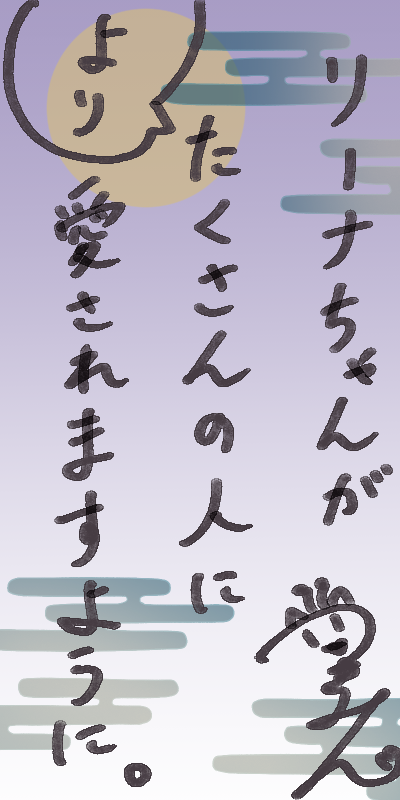 リーナちゃんが
たくさんの人に
より
愛されますように。